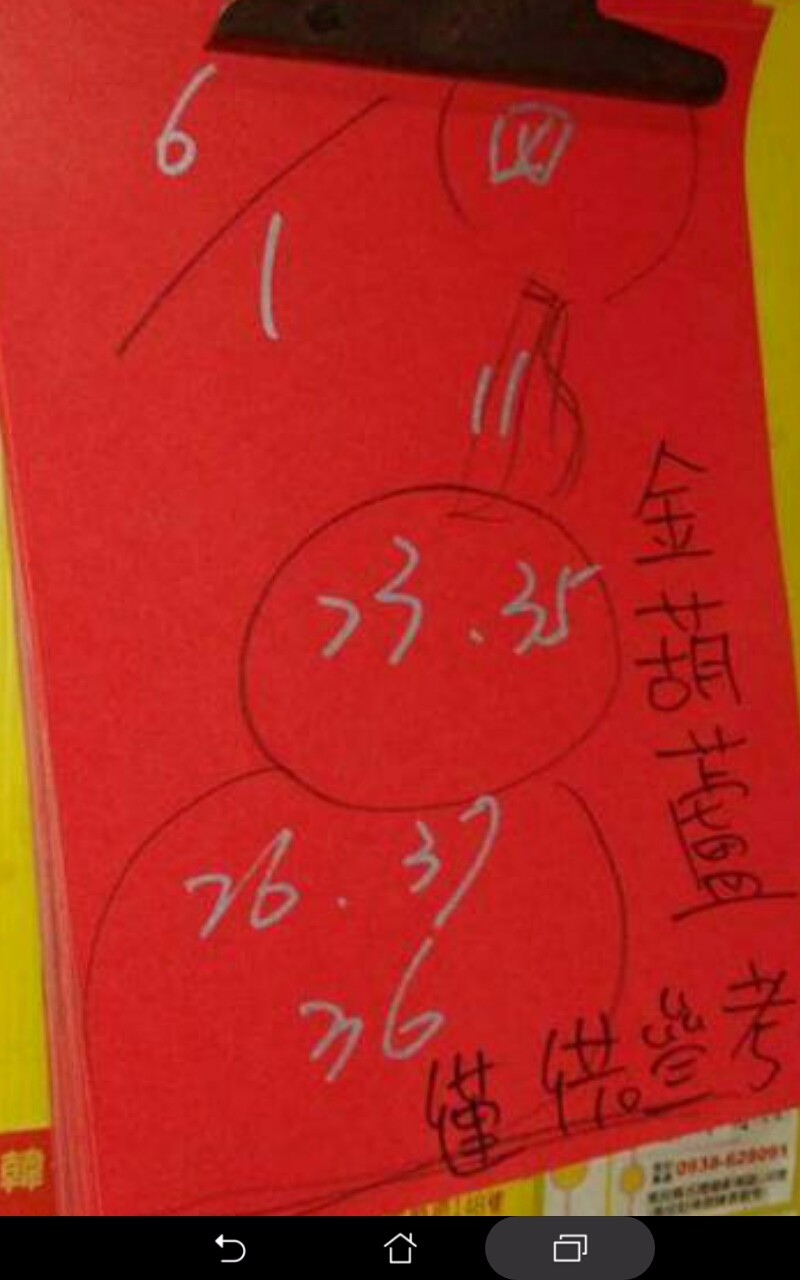 6
四
1
11
23.35
26.37
36
金葫蘆
僅供參考
韓
0938-629091